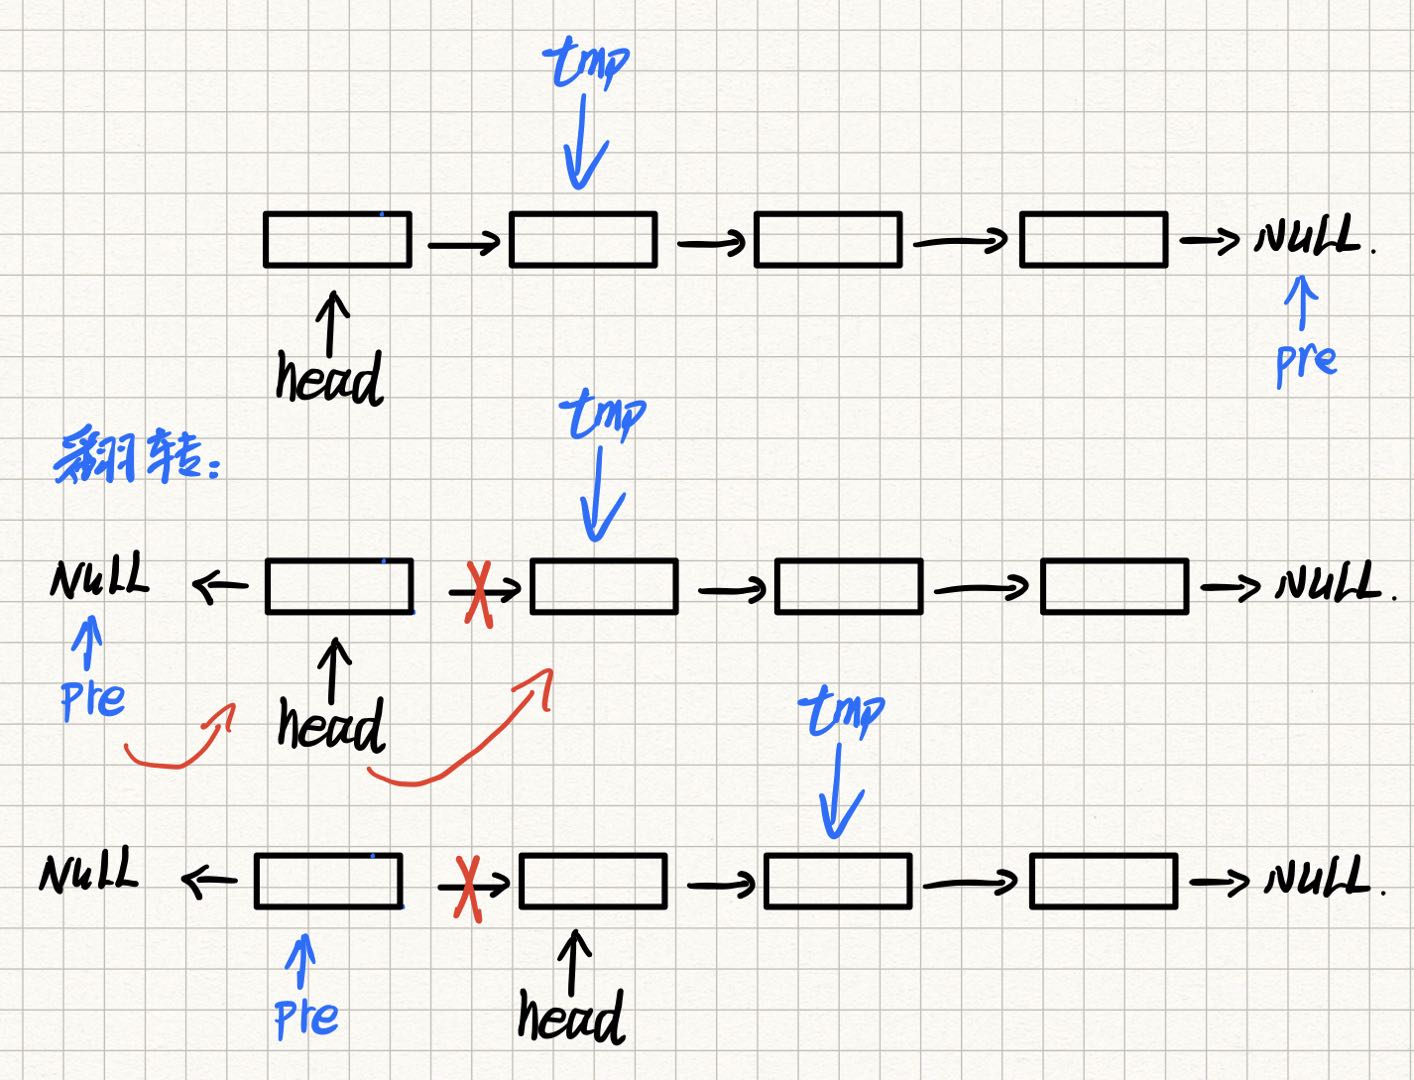 tmp
NULL.
head
pre
tmp
翻转:
NULL
NULL.
pre
head
tmp
NULL
NULL.
pre
head